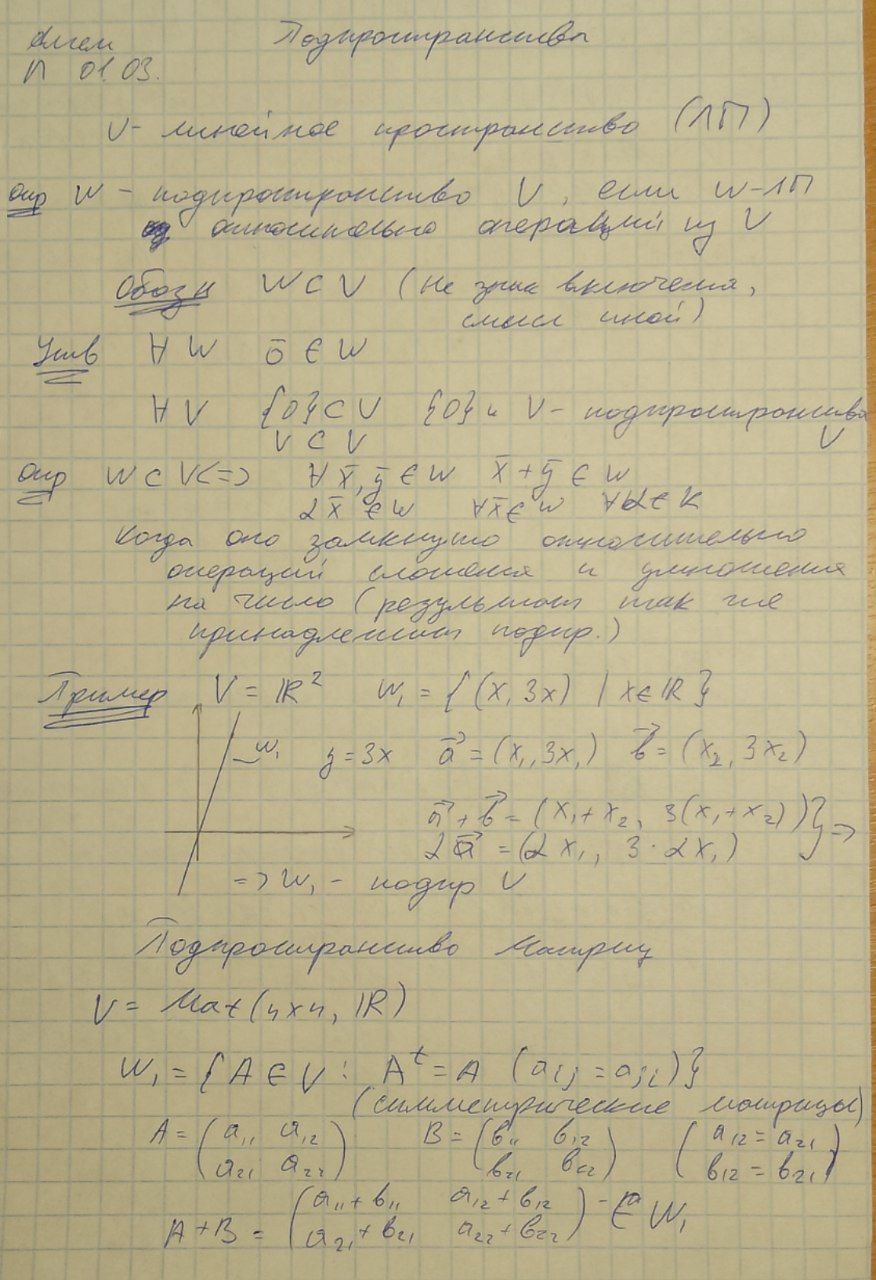 Алгем Подпространства
П 01.03.
V - линейное пространство (ЛП)
Опр W - подпространство V, если W-ЛП
относительно операций из V
Обозн W ⊂ V (не знак включения,
смысл иной)
Утв ∀ W 0̄ ∈ W
∀ V {0} ⊂ V {0} и V - подпространства
V ⊂ V V
Опр W ⊂ V <=> ∀ x̄, ȳ ∈ W x̄ + ȳ ∈ W
αx̄ ∈ W ∀x̄ ∈ W ∀α ∈ K
Когда оно замкнуто относительно
операций сложения и умножения
на число (результат так же
принадлежит подпр.)
Пример V = ℝ² W₁ = {(x, 3x) | x ∈ ℝ}
W₁ y = 3x a⃗ = (x₁, 3x₁) b⃗ = (x₂, 3x₂)
a⃗ + b⃗ = (x₁ + x₂, 3(x₁ + x₂)) } =>
αa⃗ = (αx₁, 3·αx₁)
=> W₁ - подпр V
Подпространство матриц
V = Mat(n×n, ℝ)
W₁ = {A ∈ V : Aᵗ = A (aᵢⱼ = aⱼᵢ)}
(симметрические матрицы)
A = (a₁₁ a₁₂ B = (b₁₁ b₁₂ (a₁₂ = a₂₁
a₂₁ a₂₂) b₂₁ b₂₂) b₁₂ = b₂₁)
(a₁₁ + b₁₁ a₁₂ + b₁₂
A + B = a₂₁ + b₂₁ a₂₂ + b₂₂) ∈ W₁